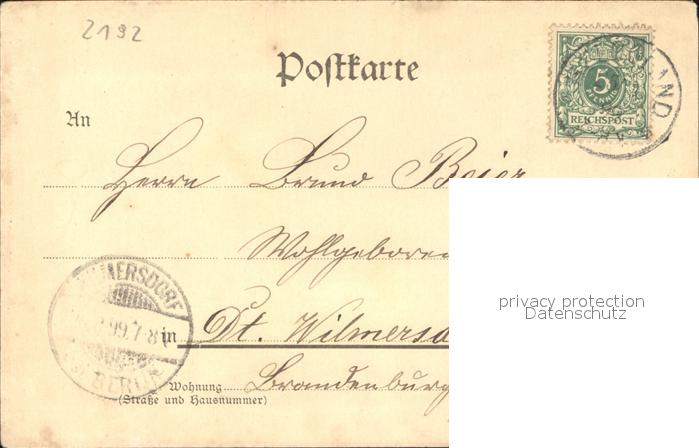 2192
Postkarte
5
PFENNIG
REICHSPOST
LAND
An
Herrn Bruno Beier
Wohlgeboren
WILMERSDORF
99. 7-8
BERLIN
in Dt. Wilmersd
Brandenburg
Wohnung
(Straße und Hausnummer)
privacy protection
Datenschutz